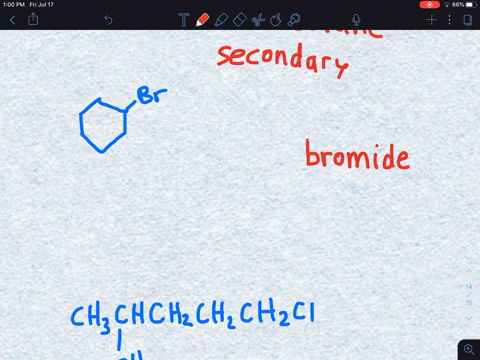 1:00 PM Fri Jul 17
66%
secondary
Br
bromide
14
15
CH3CHCH2CH2CH2Cl